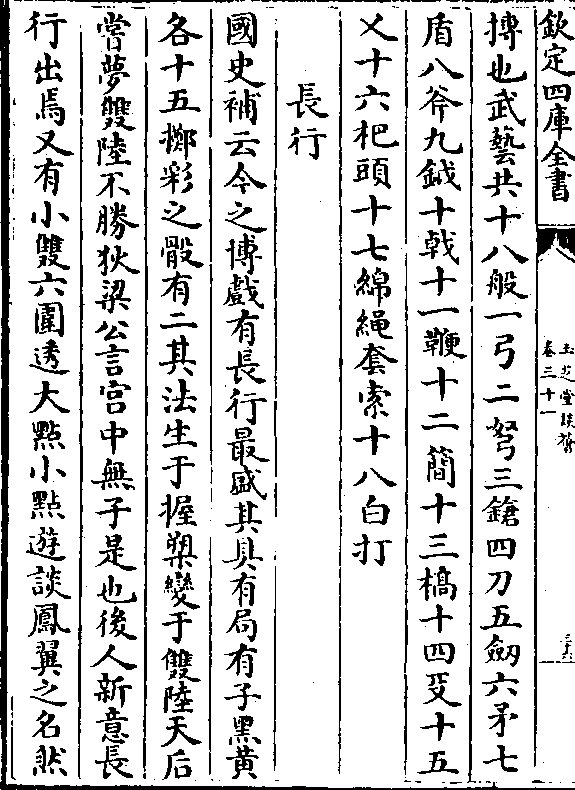 欽定四庫全書
玉芝堂談薈
卷三十一
三十六
搏也武藝共十八般一弓二弩三鎗四刀五劒六矛七
盾八斧九鉞十戟十一鞭十二簡十三檛十四殳十五
乂十六杷頭十七綿繩套索十八白打
長行
國史補云今之博戲有長行最盛其具有局有子黑黃
各十五擲彩之骰有二其法生于握槊變于雙陸天后
嘗夢雙陸不勝狄梁公言宫中無子是也後人新意長
行出焉又有小雙六圍透大點小點遊談鳳翼之名然